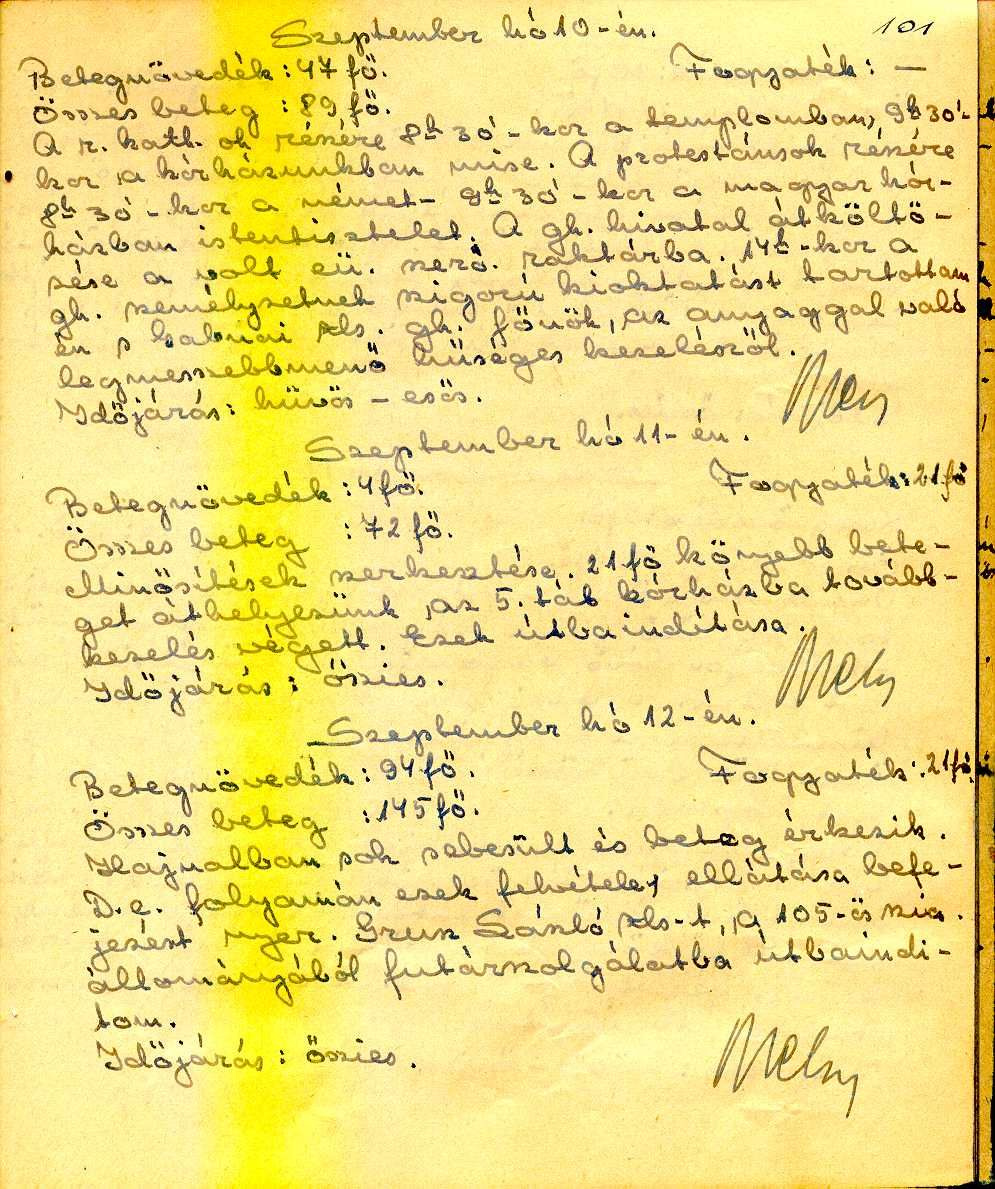 101
Szeptember hó 10-én.
Betegnövedék: 47 fő. Fogyaték: —
Összes beteg : 89 fő.
A r. kath. ok részére 8h 30'-kor a templomban, 9h 30'-
kor a kórházunkban mise. A protestánsok részére
8h 30'-kor a német- 9h 30'-kor a magyar kór-
házban istentisztelet. A gh. hivatal átköltö-
zése a volt eü. szerö. raktárba. 14h-kor a
gh. személyzetnek szigorú kioktatást tartottam
én s zls. gh. főnök, az anyaggal való
legmesszebbmenő hűséges kezelésről.
Időjárás: hüvös - esős.
Szeptember hó 11-én.
Betegnövedék: 4 fő. Fogyaték: 21 fő
Összes beteg : 72 fő.
Minősítések szerkesztése. 21 fő könyebb bete-
get áthelyezünk, az 5. táb kórházba tovább-
kezelés végett. Ezek útbaindítása.
Időjárás: őszies.
Szeptember hó 12-én.
Betegnövedék: 94 fő. Fogyaték: 21 fő.
Összes beteg : 145 fő.
Hajnalban sok sebesült és beteg érkezik.
D. e. folyamán ezek felvétele, ellátása befe-
jezést nyer. zls-t, a 105-ös
állományából futárszolgálatba útbaindi-
tom.
Időjárás: őszies.